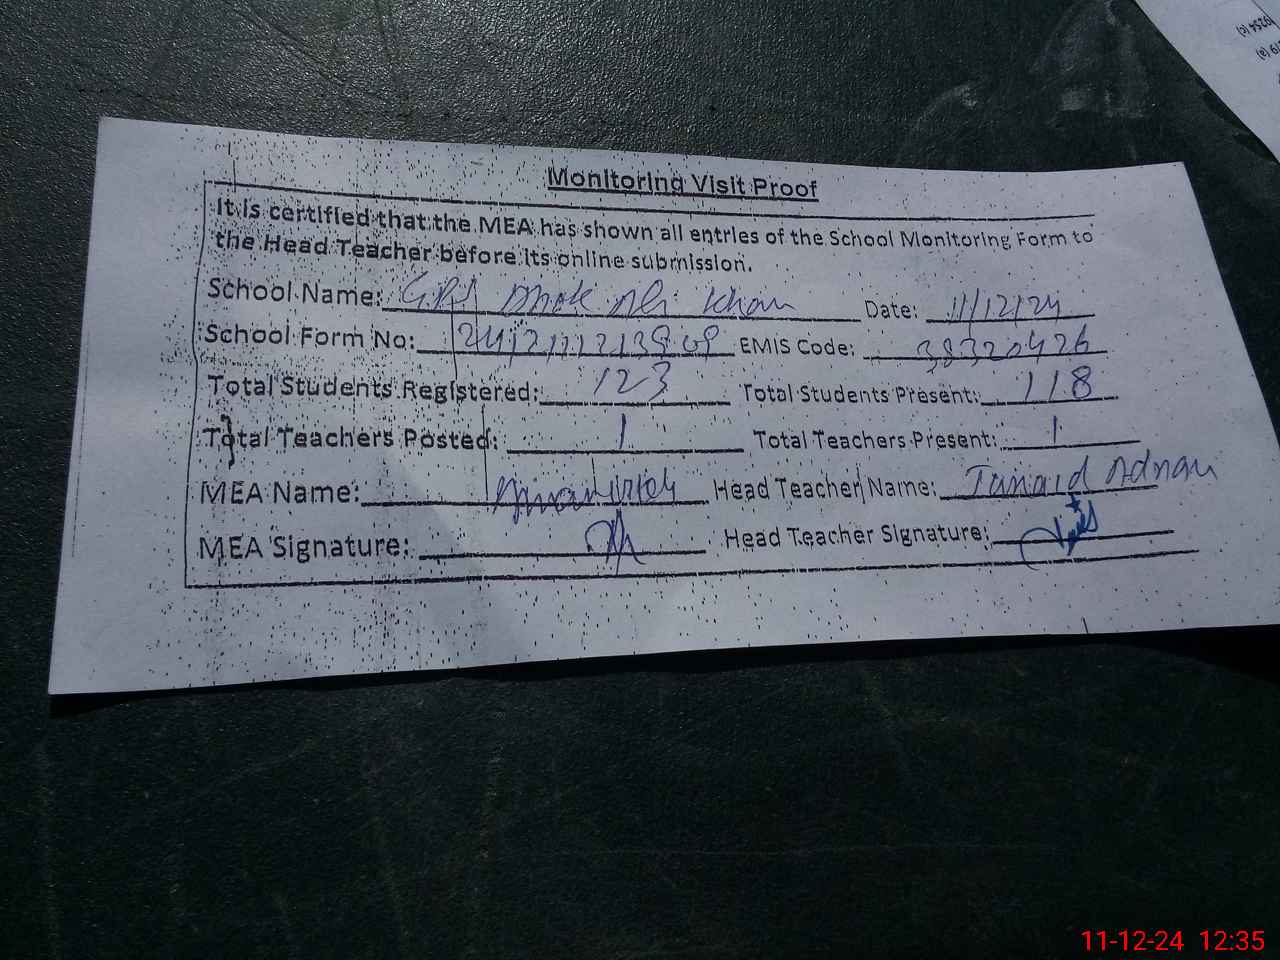 Monitoring Visit Proof
It is certified that the MEA has shown all entries of the School Monitoring Form to
the Head Teacher before its online submission.
School Name: GPS Dhok Ali Khan Date: 11/12/24
School Form No: EMIS Code: 38320426
Total Students Registered: 123 Total Students Present: 118
Total Teachers Posted: 1 Total Teachers Present: 1
MEA Name: Head Teacher Name: Adnan
MEA Signature: Head Teacher Signature:
11-12-24 12:35